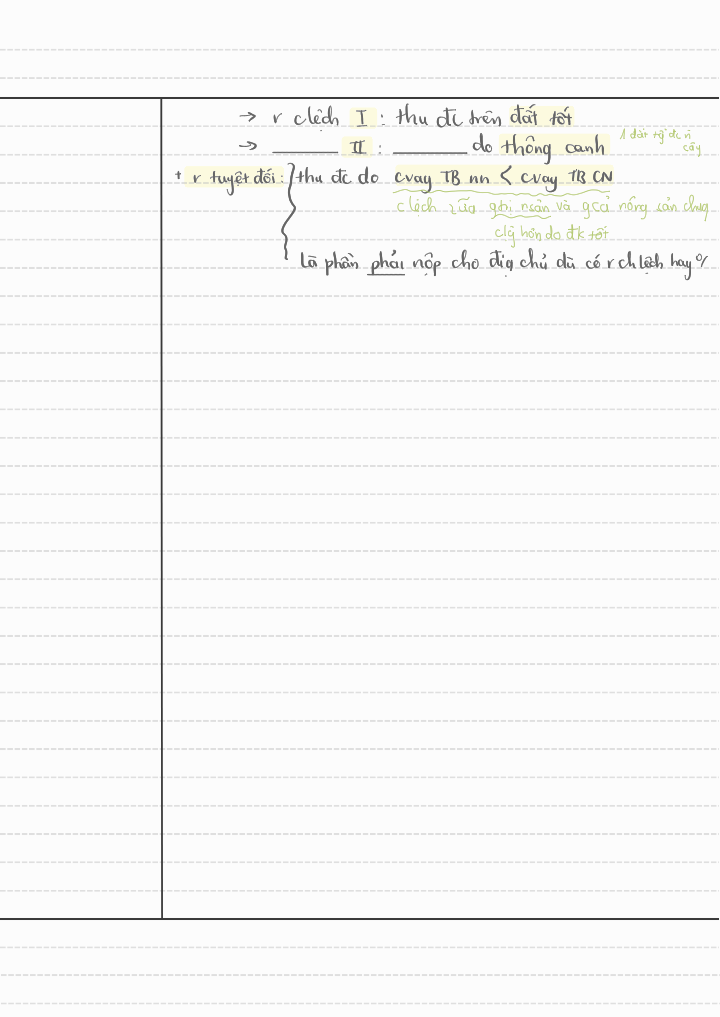 → r clệch I : thu đc trên đất tốt
→ ______ II : ______ do thông canh
1 đất tg đc n
cây
+ r tuyệt đối : thu đc do cvay TB nn < cvay TB CN
clệch giữa gbi nsản và gcả nông sản chug
do đk tốt
Là phần phải nộp cho địa chủ dù có r chlệch hay 0/